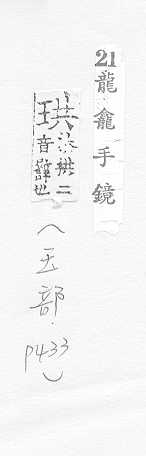 21龍龕手鏡
珙
音
拱二
璧也
(玉部.
p433)